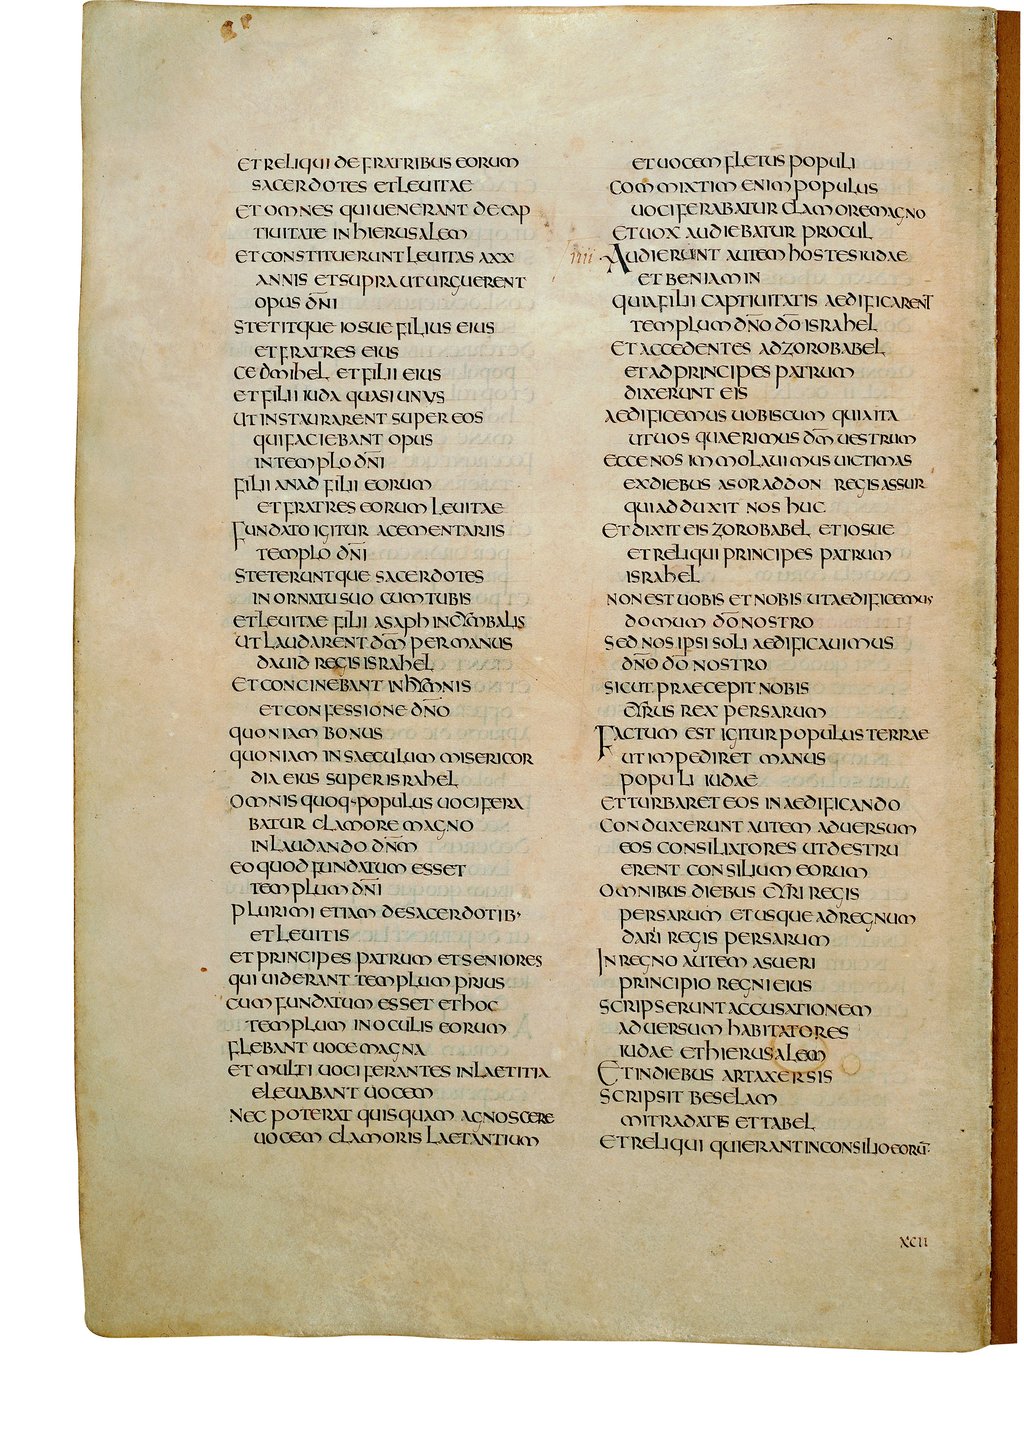 ET RELIQUI DE FRATRIBUS EORUM
SACERDOTES ET LEUITAE
ET OMNES QUI UENERANT DE CAP
TIUITATE IN HIERUSALEM
ET CONSTITUERUNT LEUITAS A XX
ANNIS ET SUPRA UT URGUERENT
OPUS DN̄I
STETITQUE IOSUE FILIUS EIUS
ET FRATRES EIUS
CEDMIHEL ET FILII EIUS
ET FILII IUDA QUASI UNUS
UT INSTAURARENT SUPER EOS
QUI FACIEBANT OPUS
IN TEMPLO DN̄I
FILII ANAD FILII EORUM
ET FRATRES EORUM LEUITAE
FUNDATO IGITUR A CEMENTARIIS
TEMPLO DN̄I
STETERUNTQUE SACERDOTES
IN ORNATU SUO CUM TUBIS
ET LEUITAE FILII ASAPH IN CYMBALIS
UT LAUDARENT DM̄ PER MANUS
DAUID REGIS ISRAHEL
ET CONCINEBANT IN HYMNIS
ET CONFESSIONE DN̄O
QUONIAM BONUS
QUONIAM IN SAECULUM MISERICOR
DIA EIUS SUPER ISRAHEL
OMNIS QUOQ· POPULUS UOCIFERA
BATUR CLAMORE MAGNO
IN LAUDANDO DN̄M
EO QUOD FUNDATUM ESSET
TEMPLUM DN̄I
PLURIMI ETIAM DE SACERDOTIB·
ET LEUITIS
ET PRINCIPES PATRUM ET SENIORES
QUI UIDERANT TEMPLUM PRIUS
CUM FUNDATUM ESSET ET HOC
TEMPLUM IN OCULIS EORUM
FLEBANT UOCE MAGNA
ET MULTI UOCIFERANTES IN LAETITIA
ELEUABANT UOCEM
NEC POTERAT QUISQUAM AGNOSCERE
UOCEM CLAMORIS LAETANTIUM
ET UOCEM FLETUS POPULI
COMMIXTIM ENIM POPULUS
UOCIFERABATUR CLAMORE MAGNO
ET UOX AUDIEBATUR PROCUL
IIII AUDIERUNT AUTEM HOSTES IUDAE
ET BENIAMIN
QUIA FILII CAPTIUITATIS AEDIFICARENT
TEMPLUM DN̄O DŌ ISRAHEL
ET ACCEDENTES AD ZOROBABEL
ET AD PRINCIPES PATRUM
DIXERUNT EIS
AEDIFICEMUS UOBISCUM QUIA ITA
UT UOS QUAERIMUS DM̄ UESTRUM
ECCE NOS IMMOLAUIMUS UICTIMAS
EX DIEBUS ASORADDON REGIS ASSUR
QUI ADDUXIT NOS HUC
ET DIXIT EIS ZOROBABEL ET IOSUE
ET RELIQUI PRINCIPES PATRUM
ISRAHEL
NON EST UOBIS ET NOBIS UT AEDIFICEMUS
DOMUM DŌ NOSTRO
SED NOS IPSI SOLI AEDIFICAUIMUS
DN̄O DŌ NOSTRO
SICUT PRAECEPIT NOBIS
CYRUS REX PERSARUM
FACTUM EST IGITUR POPULUS TERRAE
UT IMPEDIRET MANUS
POPULI IUDAE
ET TURBARET EOS IN AEDIFICANDO
CONDUXERUNT AUTEM ADUERSUM
EOS CONSILIATORES UT DESTRU
ERENT CONSILIUM EORUM
OMNIBUS DIEBUS CYRI REGIS
PERSARUM ET USQUE AD REGNUM
DARI REGIS PERSARUM
IN REGNO AUTEM ASUERI
PRINCIPIO REGNI EIUS
SCRIPSERUNT ACCUSATIONEM
ADUERSUM HABITATORES
IUDAE ET HIERUSALEM
ET IN DIEBUS ARTAXERSIS
SCRIPSIT BESELAM
MITRADATIS ET TABEL
ET RELIQUI QUI ERANT IN CONSILIO EORŪ·
XCII